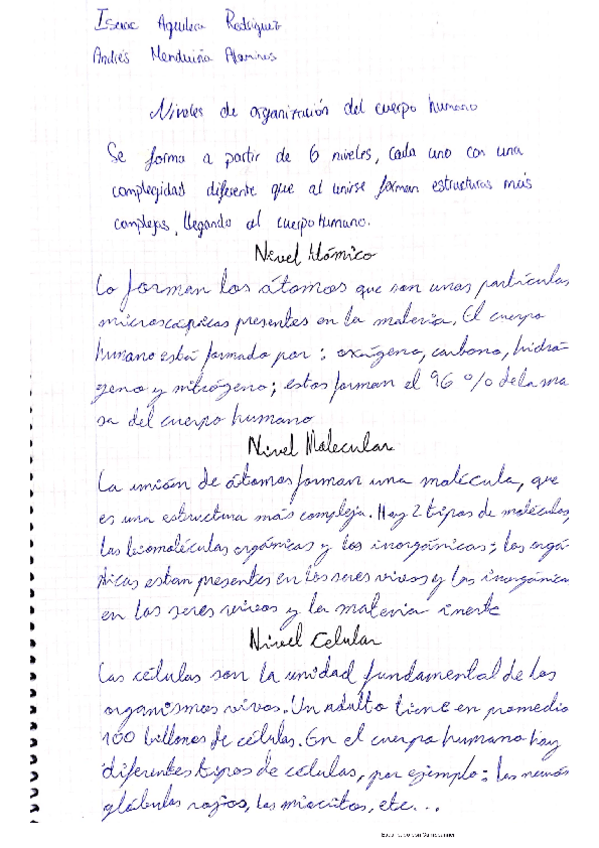 Isaac Aguilera Rodríguez
Andrés Menduiña Alaminos
Niveles de organización del cuerpo humano
Se forma a partir de 6 niveles, Cada uno con una
complegidad diferente que al unirse forman estructuras más
complejas, llegando al cuerpo humano.
Nivel Atómico
Lo forman los átomos que son unas partículas
microscópicas presentes en la materia. El cuerpo
humano está formado por: oxígeno, carbono, hidró-
geno y nitrógeno; estos forman el 96 % de la ma
sa del cuerpo humano
Nivel Molecular
La unión de átomos forman una molécula, que
es una estructura más compleja. Hay 2 tipos de moléculas,
las biomoléculas orgánicas y las inorgánicas; las orgá-
nicas estan presentes en los seres vivos y las inorgánica
en los seres vivos y la materia inerte
Nivel Celular
Las células son la unidad fundamental de los
organismos vivos. Un adulto tiene en promedio
100 billones de células. En el cuerpo humano hay
diferentes tipos de células, por ejemplo: las
glóbulos rojos, los miocitos, etc...